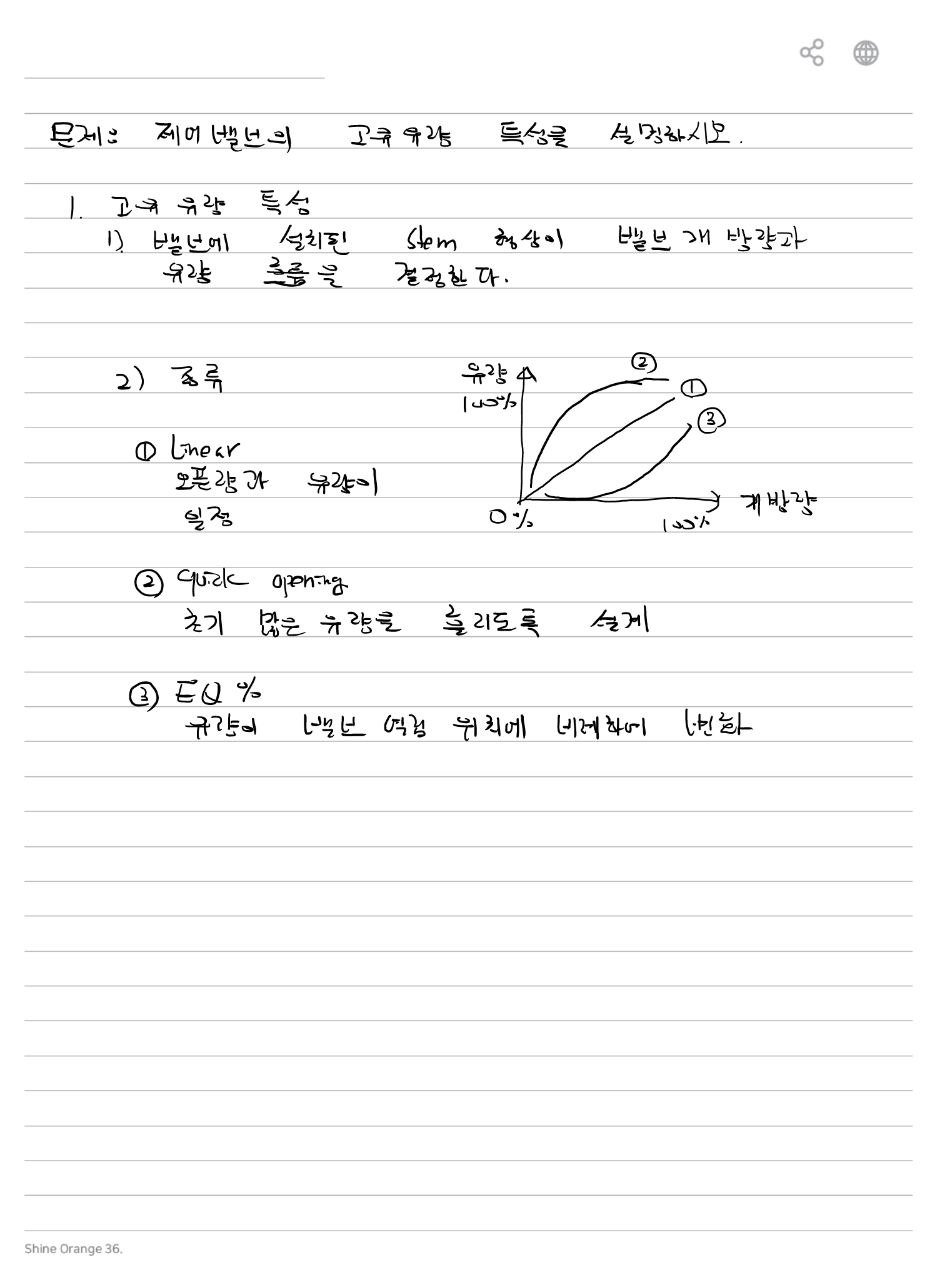 문제: 제어밸브의 고유 유량 특성을 설명하시오.
1. 고유 유량 특성
1) 밸브에 설치된 Stem 형상이 밸브 개방량과
유량 흐름을 결정한다.
2) 종류
유량
100%
②
①
③
0%
100%
개방량
① Linear
오픈량과 유량이
일정
② quick opening
초기 많은 유량을 흘리도록 설계
③ EQ %
유량이 밸브 열림 위치에 비례하에 변화
Shine Orange 36.